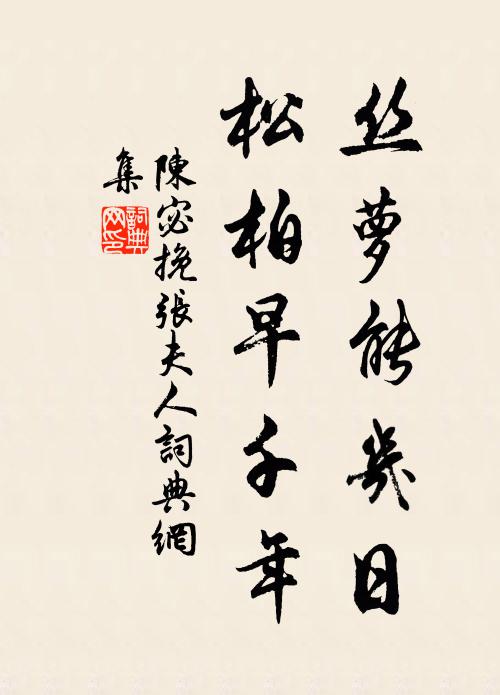 丝萝能几日
松柏早千年
陳宓挽張夫人詞典網
集
詞典
网印